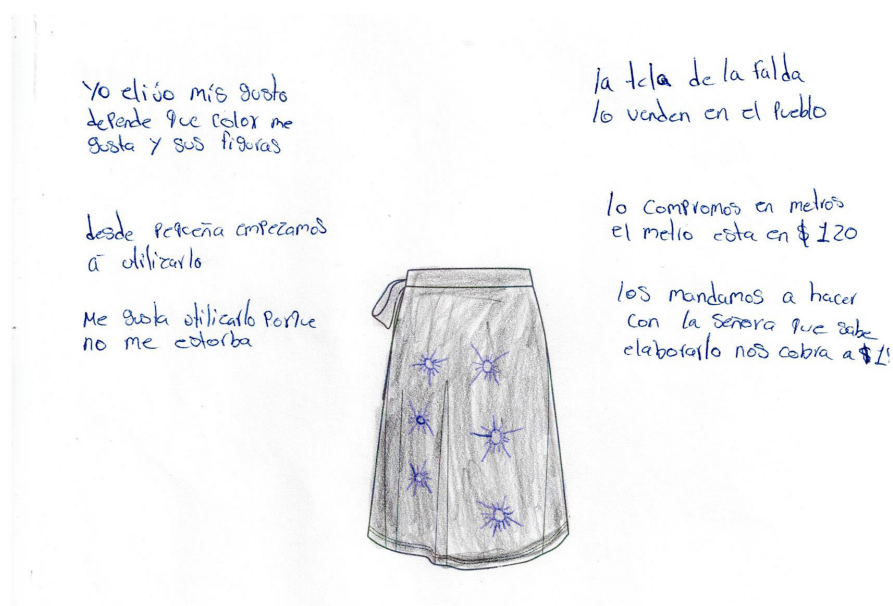 Yo elijo mis gusto
depende que color me
gusta y sus figuras
desde peqeeña empezamos
a utilizarlo
Me gusta utilicarlo porque
no me estorba
la tela de la falda
lo venden en el pueblo
lo compromos en metros
el metro esta en $ 120
los mandamos a hacer
con la señora que sabe
elaborarlo nos cobra a